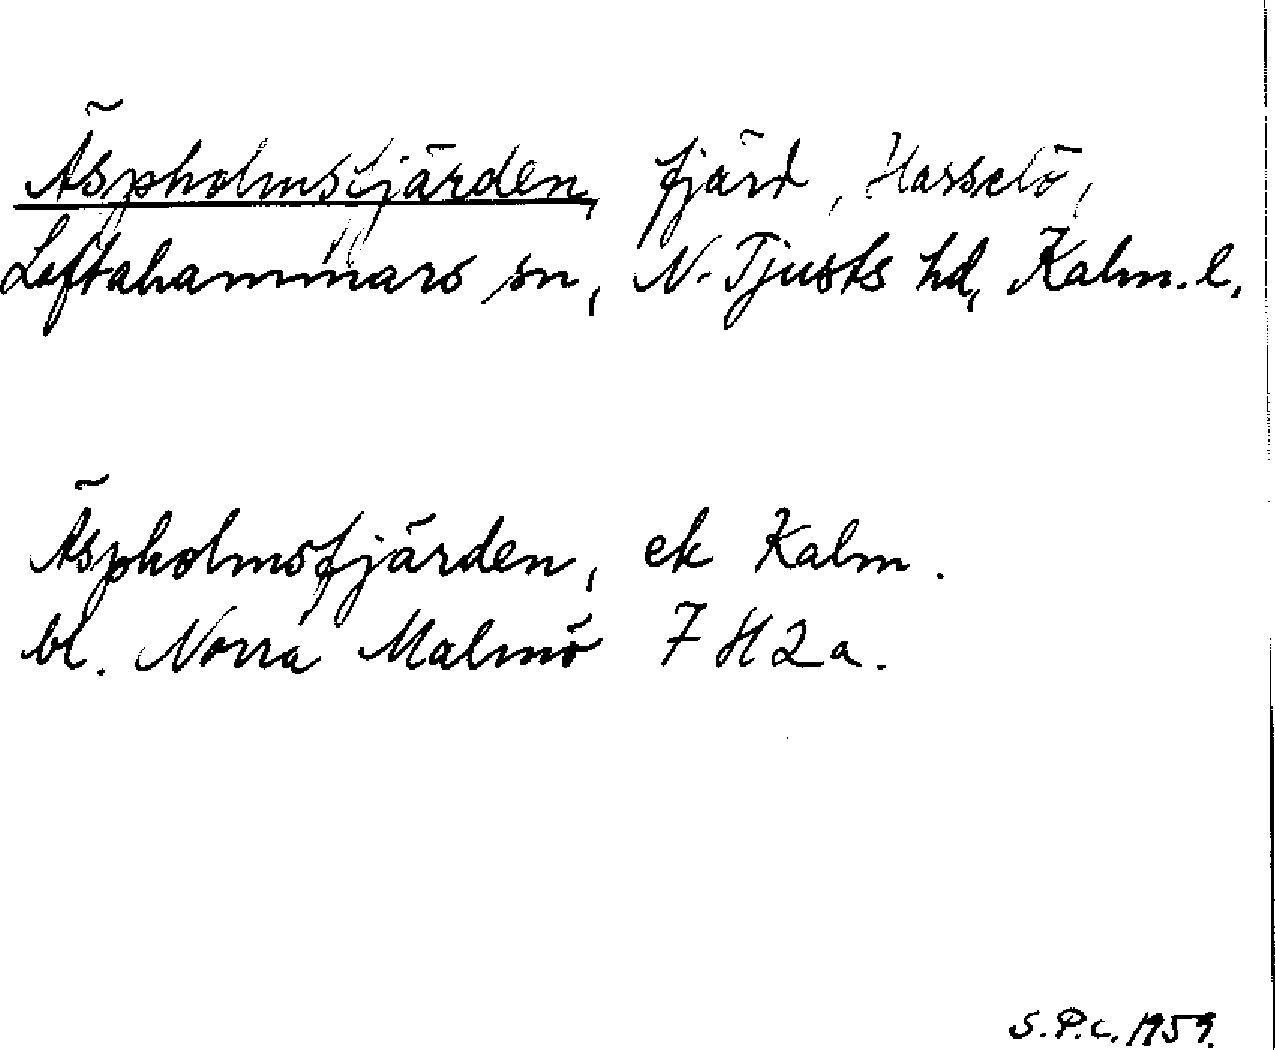 Äspholmsfjärden, fjärd, Hasselö,
Loftahammars sn, N. Tjusts hd, Kalm. l.
Äspholmsfjärden, ek Kalm.
bl. Norra Malmö 7H2a.
S.P.C. 1959.